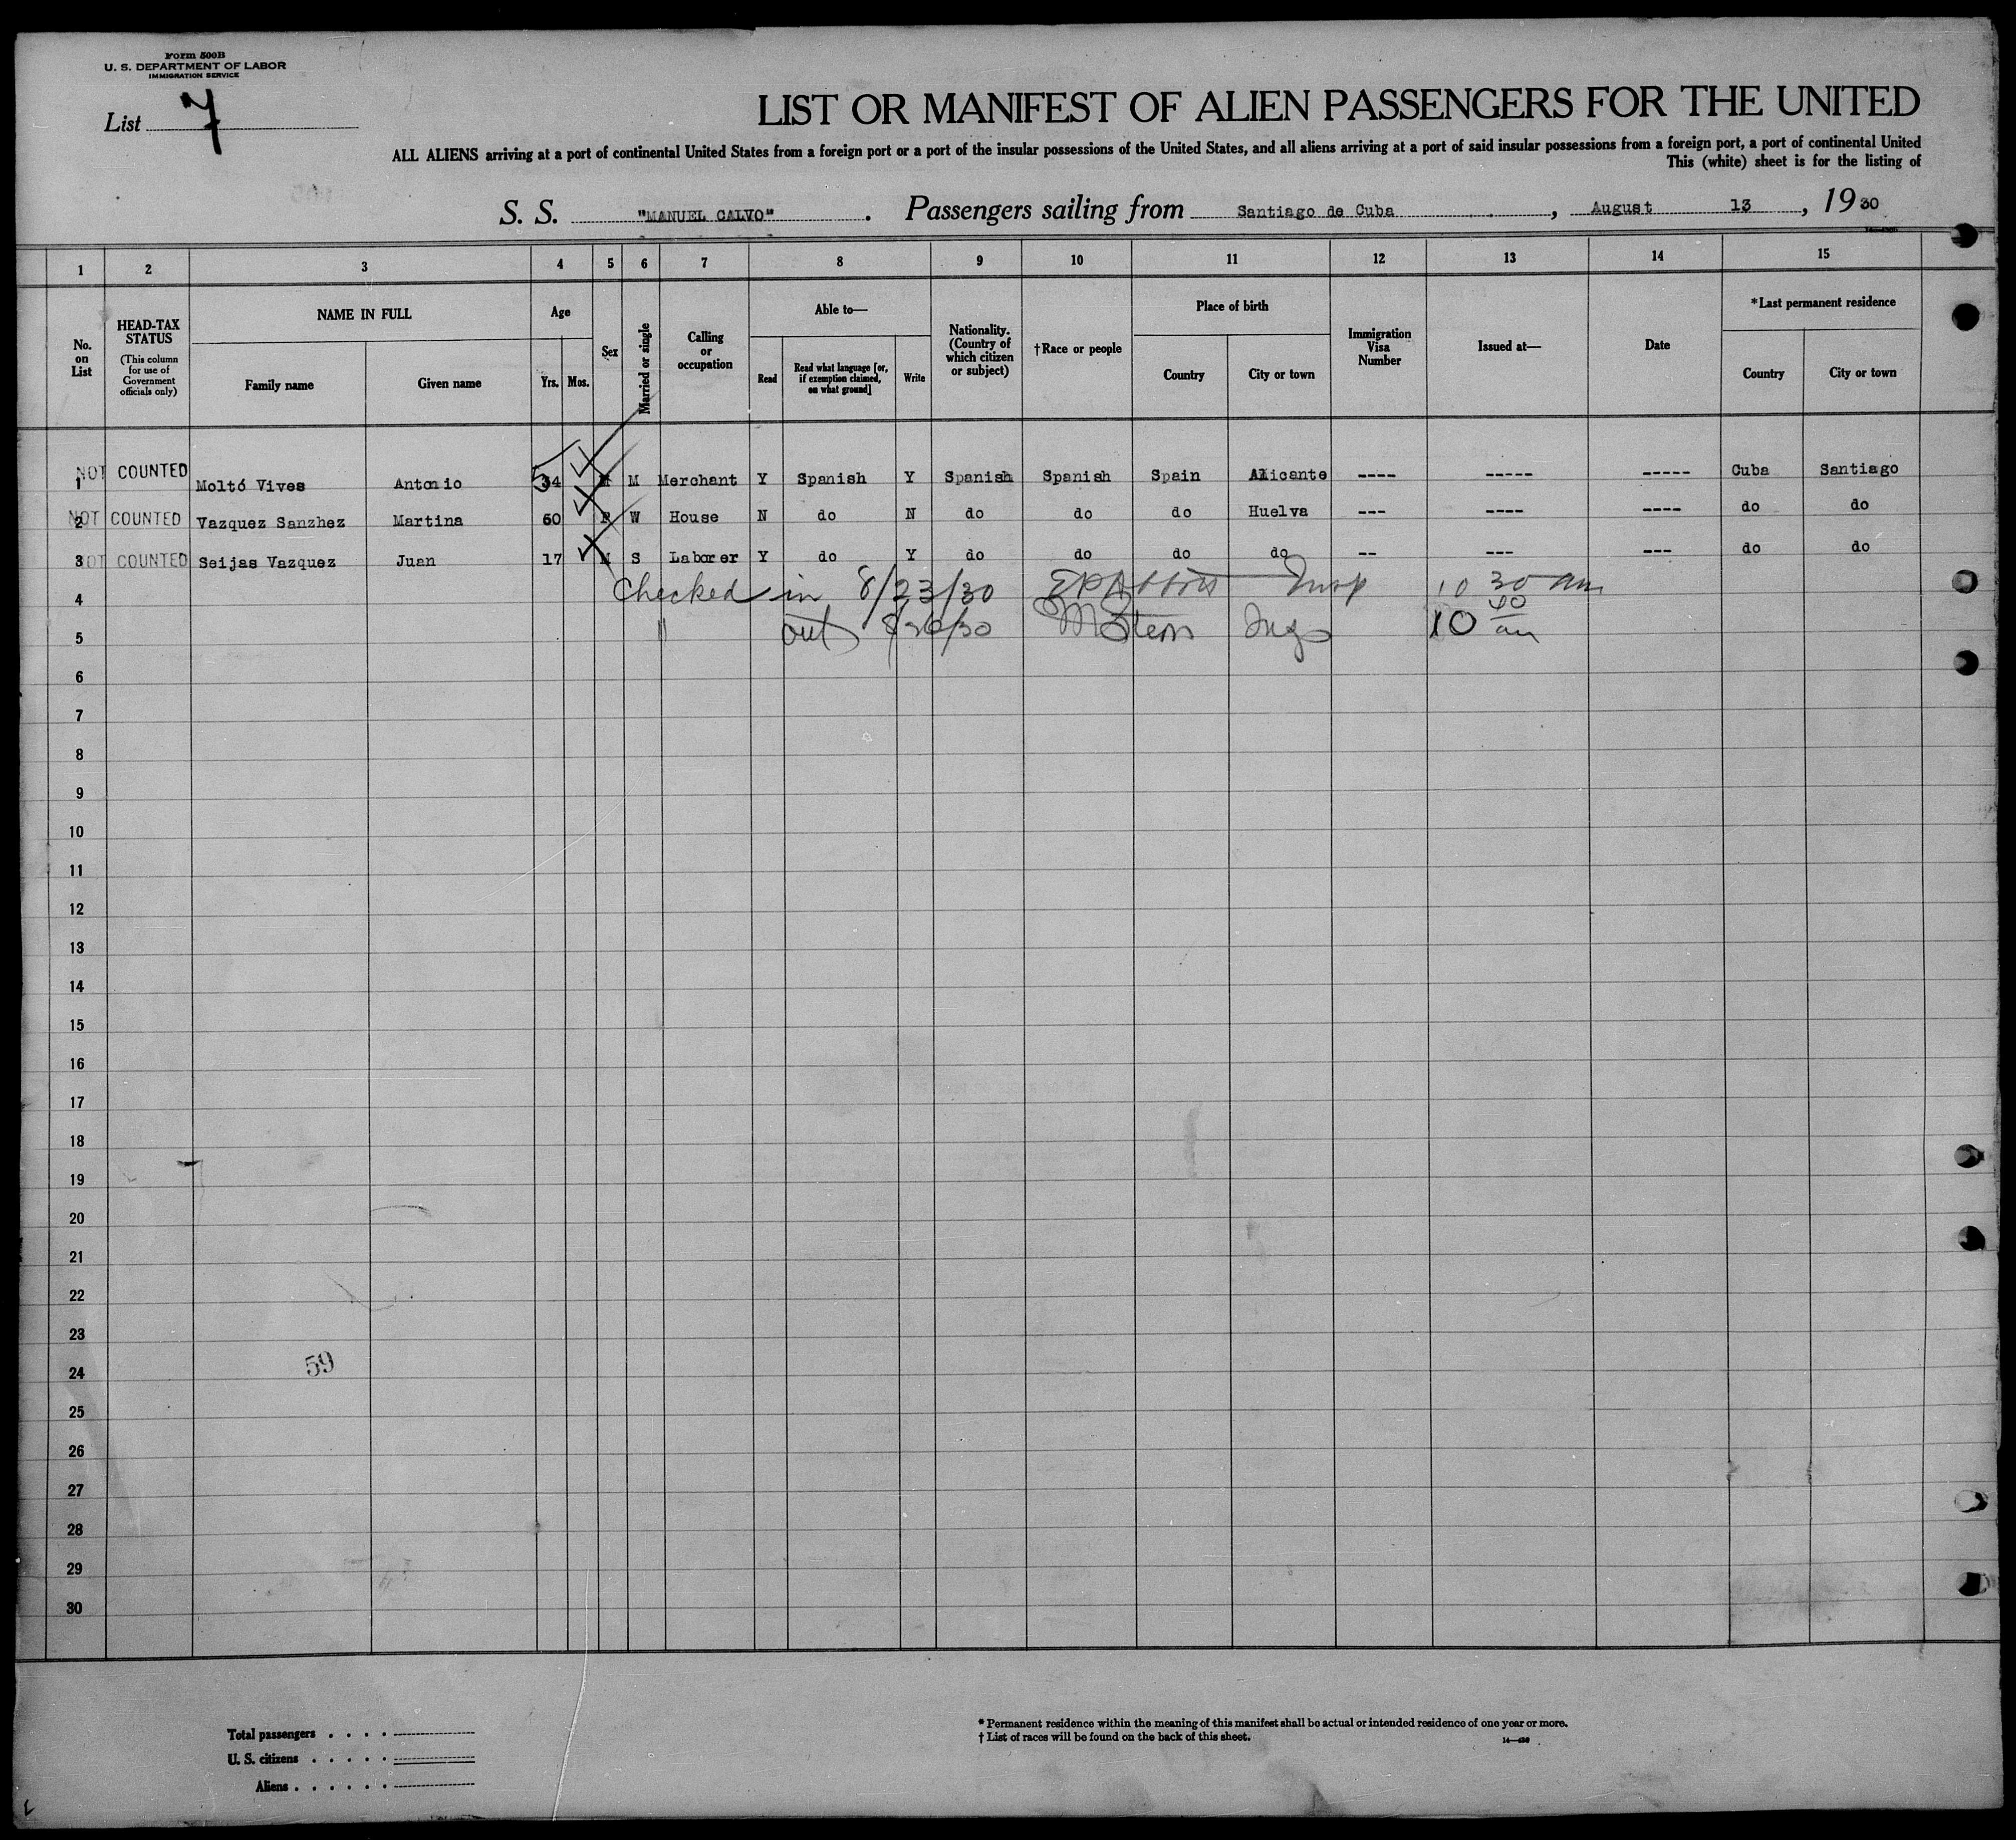 Form 500B
U. S. DEPARTMENT OF LABOR
IMMIGRATION SERVICE
List 7
LIST OR MANIFEST OF ALIEN PASSENGERS FOR THE UNITED
ALL ALIENS arriving at a port of continental United States from a foreign port or a port of the insular possessions of the United States, and all aliens arriving at a port of said insular possessions from a foreign port, a port of continental United
This (white) sheet is for the listing of
S. S. "MANUEL CALVO" . Passengers sailing from Santiago de Cuba , August 13 , 1930
1 2 3 4 5 6 7 8 9 10 11 12 13 14 15
No. on List
HEAD-TAX STATUS (This column for use of Government officials only)
NAME IN FULL
Family name Given name
Age
Yrs. Mos.
Sex
Married or single
Calling or occupation
Able to—
Read Read what language [or, if exemption claimed, on what ground] Write
Nationality. (Country of which citizen or subject)
†Race or people
Place of birth
Country City or town
Immigration Visa Number
Issued at—
Date
*Last permanent residence
Country City or town
1 NOT COUNTED Moltó Vives Antonio 34 M M Merchant Y Spanish Y Spanish Spanish Spain Alicante ---- ----- ----- Cuba Santiago
2 NOT COUNTED Vazquez Sanzhez Martina 60 F W House N do N do do do Huelva --- ---- ---- do do
3 NOT COUNTED Seijas Vazquez Juan 17 M S Laborer Y do Y do do do do -- --- --- do do
4 Checked in 8/23/30 Insp 10 30 am
5 " out 8/26/30 10 40 am
6
7
8
9
10
11
12
13
14
15
16
17
18
19
20
21
22
23
59
24
25
26
27
28
29
30
Total passengers . . . .
U. S. citizens . . . . .
Aliens . . . . . .
* Permanent residence within the meaning of this manifest shall be actual or intended residence of one year or more.
† List of races will be found on the back of this sheet.